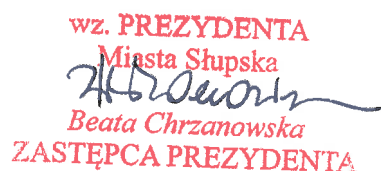 wz. PREZYDENTA
Miasta Słupska
Beata Chrzanowska
ZASTĘPCA PREZYDENTA